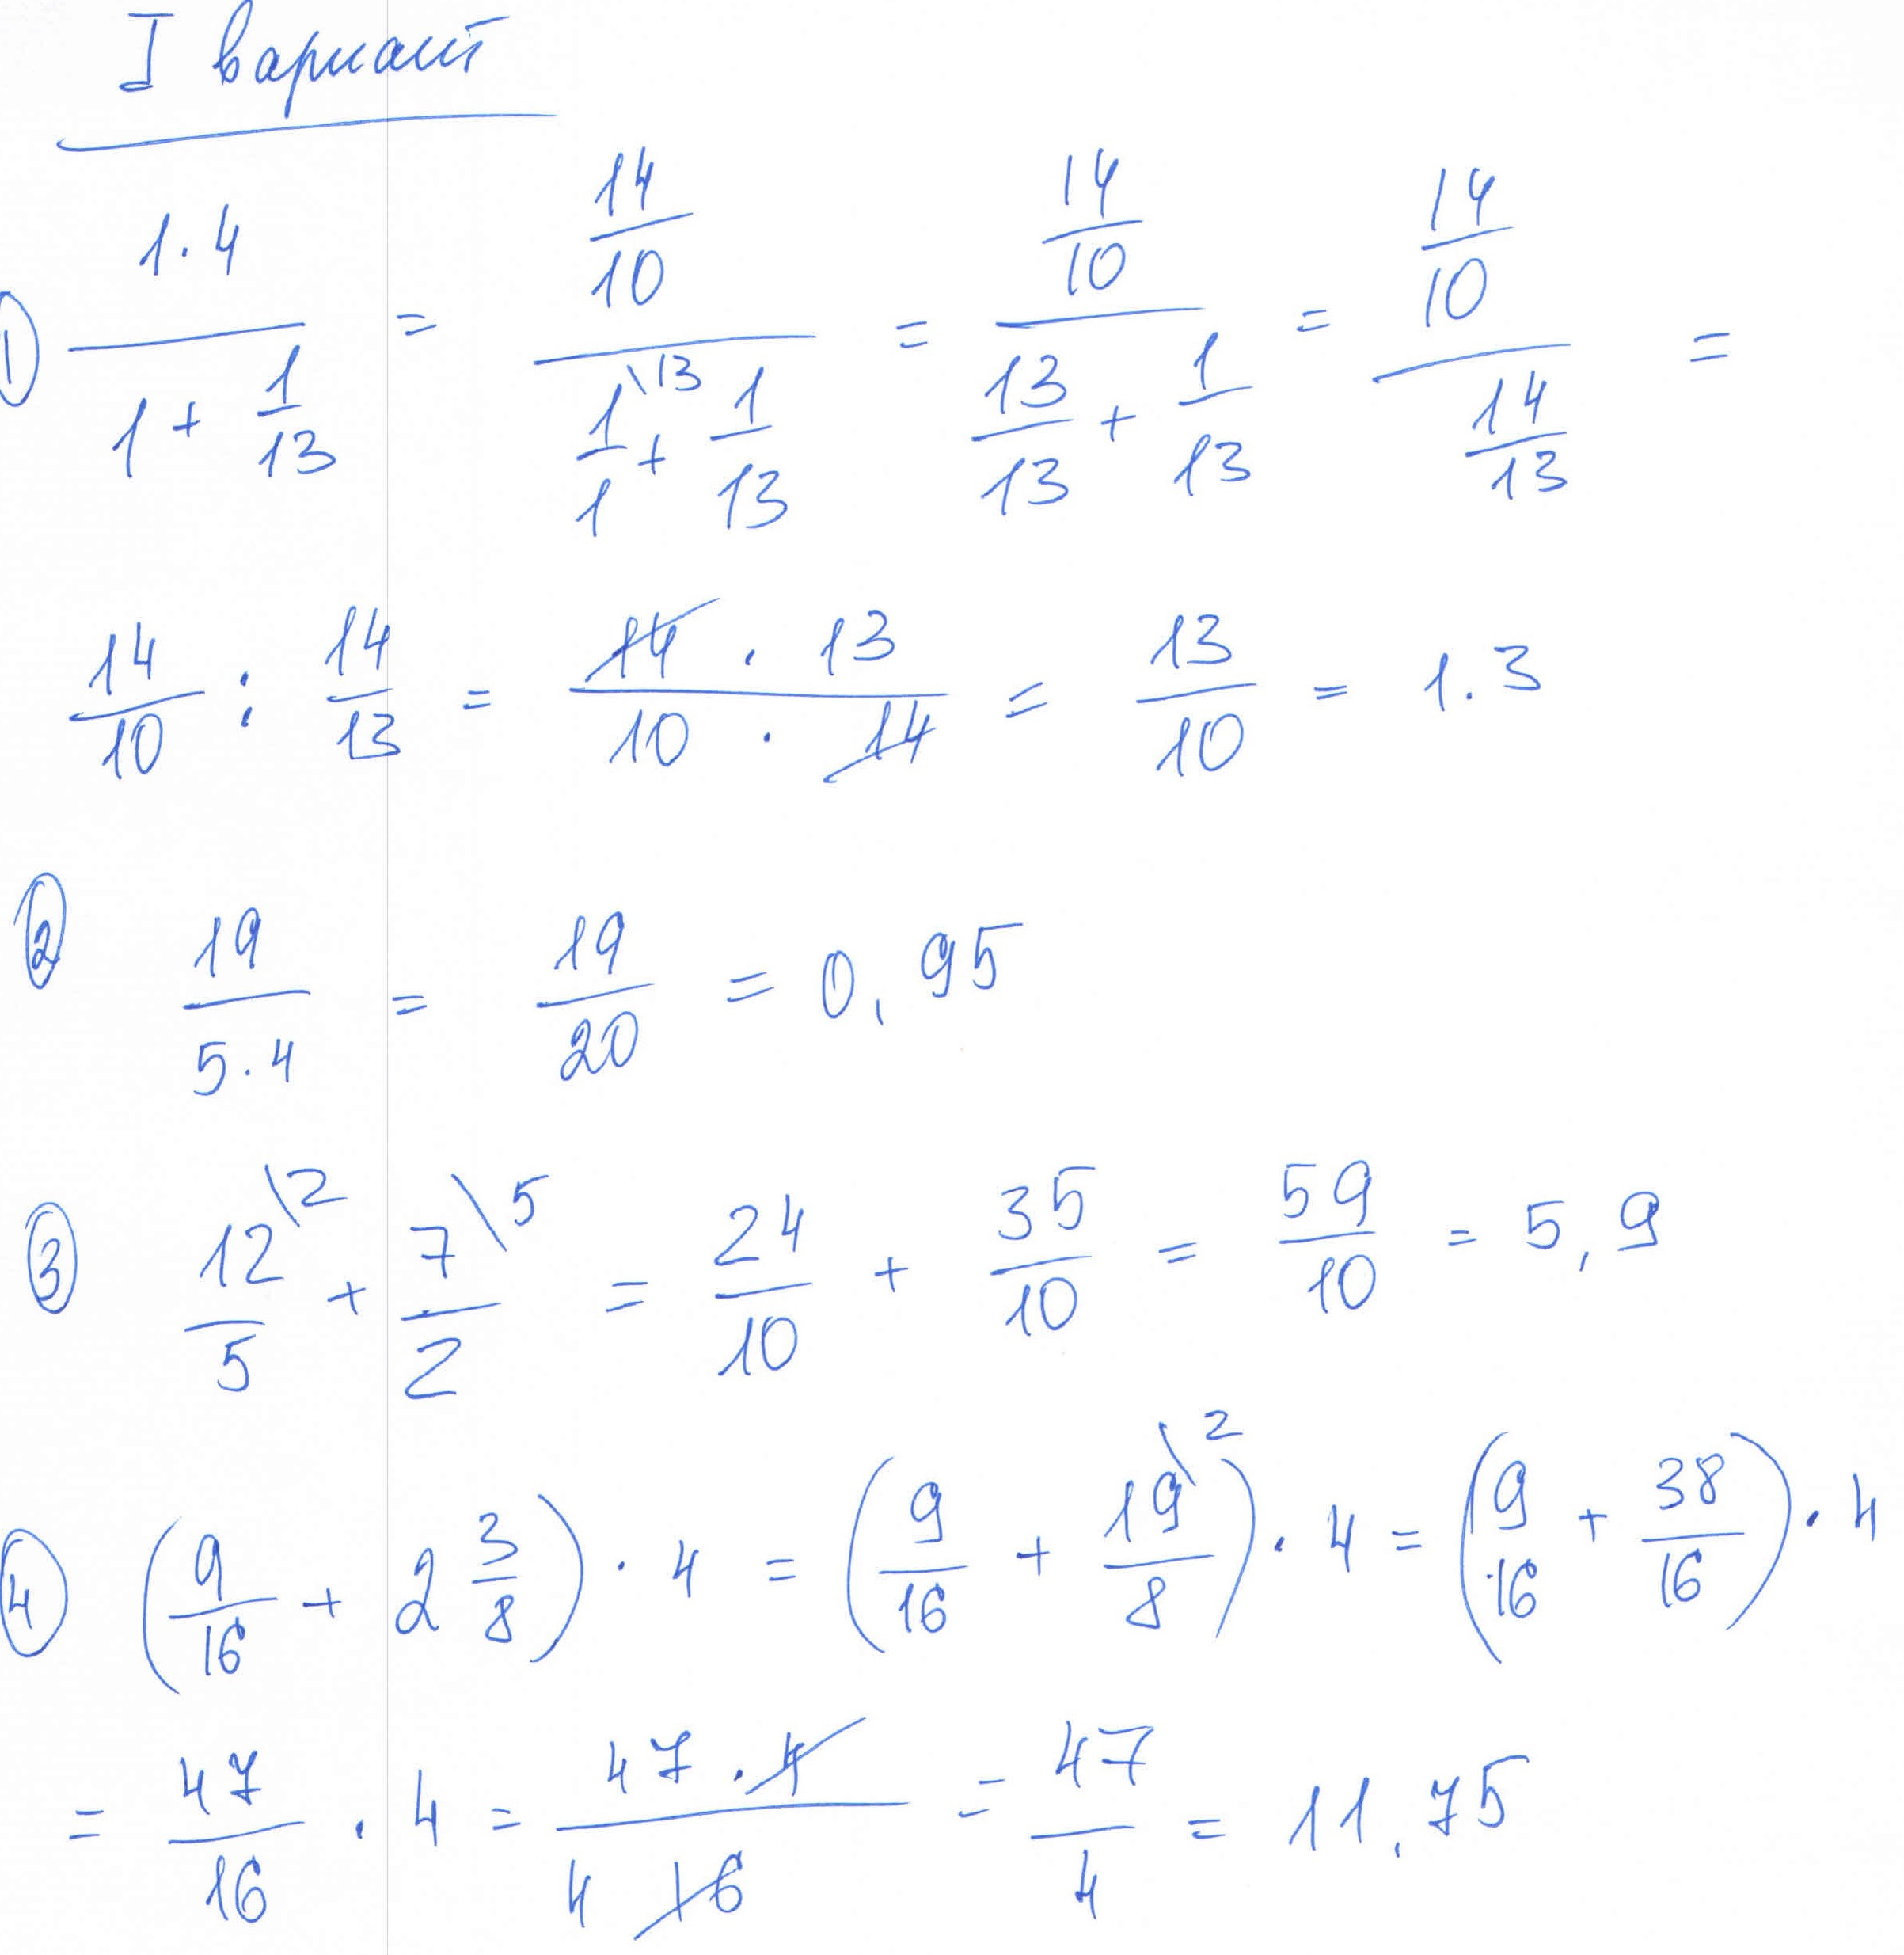 I вариант
① 1.4/(1 + 1/13) = (14/10)/(1/1\13 + 1/13) = (14/10)/(13/13 + 1/13) = (14/10)/(14/13) =
14/10 : 14/13 = (14 · 13)/(10 · 14) = 13/10 = 1.3
② 19/(5.4) = 19/20 = 0,95
③ 12/5\2 + 7/2\5 = 24/10 + 35/10 = 59/10 = 5,9
④ (9/16 + 2 3/8) · 4 = (9/16 + 19/8\2) · 4 = (9/16 + 38/16) · 4
= 47/16 · 4 = (47 · 4)/(4 16) = 47/4 = 11,75